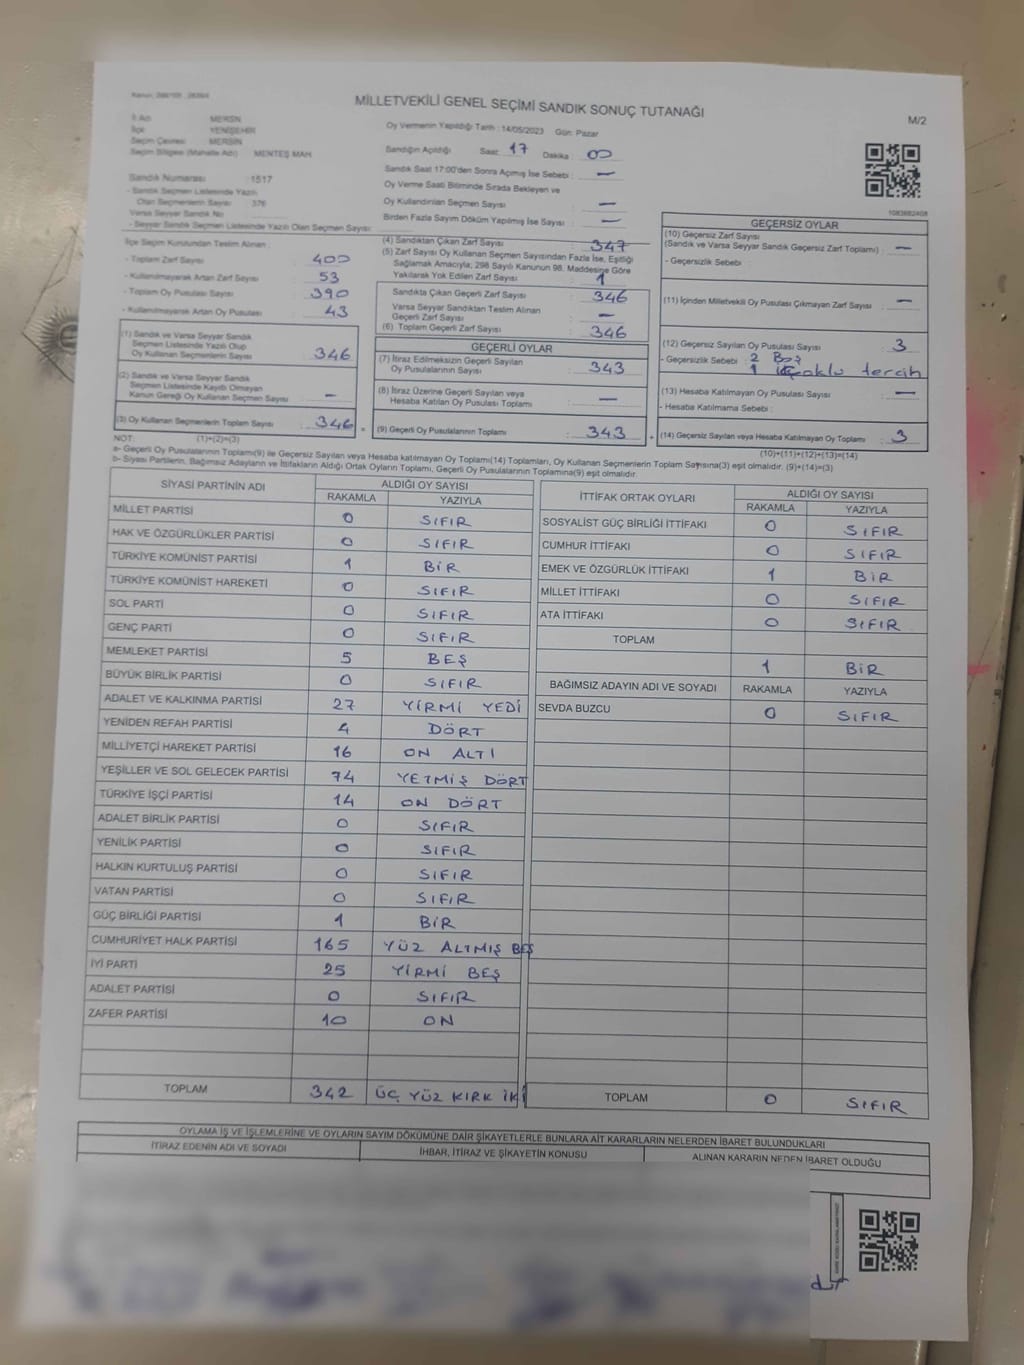 MİLLETVEKİLİ GENEL SEÇİMİ SANDIK SONUÇ TUTANAĞI
M/2
İl Adı : MERSİN
İlçe : YENİŞEHİR
Seçim Çevresi : MERSİN
Seçim Bölgesi (Mahalle Adı) : MENTEŞ MAH
Sandık Numarası : 1517
- Sandık Seçmen Listesinde Yazılı
Olan Seçmenlerin Sayısı : 376
Varsa Seyyar Sandık No :
- Seyyar Sandık Seçmen Listesinde Yazılı Olan Seçmen Sayısı:
Oy Vermenin Yapıldığı Tarih : 14/05/2023 Gün: Pazar
Sandığın Açıldığı Saat: 17 Dakika : 00
Sandık Saat 17:00'den Sonra Açmış İse Sebebi : —
Oy Verme Saati Bitiminde Sırada Bekleyen ve
Oy Kullandırılan Seçmen Sayısı : —
Birden Fazla Sayım Döküm Yapılmış İse Sayısı : —
1083682408
İlçe Seçim Kurulundan Teslim Alınan :
- Toplam Zarf Sayısı : 400
- Kullanılmayarak Artan Zarf Sayısı : 53
- Toplam Oy Pusulası Sayısı : 390
- Kullanılmayarak Artan Oy Pusulası : 43
(1) Sandık ve Varsa Seyyar Sandık
Seçmen Listesinde Yazılı Olup
Oy Kullanan Seçmenlerin Sayısı : 346
(2) Sandık ve Varsa Seyyar Sandık
Seçmen Listesinde Kayıtlı Olmayan
Kanun Gereği Oy Kullanan Seçmen Sayısı : —
(3) Oy Kullanan Seçmenlerin Toplam Sayısı : 346
(4) Sandıktan Çıkan Zarf Sayısı : 347
(5) Zarf Sayısı Oy Kullanan Seçmen Sayısından Fazla İse, Eşitliği
Sağlamak Amacıyla; 298 Sayılı Kanunun 98. Maddesine Göre
Yakılarak Yok Edilen Zarf Sayısı : 1
Sandıkta Çıkan Geçerli Zarf Sayısı : 346
Varsa Seyyar Sandıktan Teslim Alınan
Geçerli Zarf Sayısı : —
(6) Toplam Geçerli Zarf Sayısı : 346
GEÇERLİ OYLAR
(7) İtiraz Edilmeksizin Geçerli Sayılan
Oy Pusulalarının Sayısı : 343
(8) İtiraz Üzerine Geçerli Sayılan veya
Hesaba Katılan Oy Pusulası Toplamı : —
= (9) Geçerli Oy Pusulalarının Toplamı : 343
GEÇERSİZ OYLAR
(10) Geçersiz Zarf Sayısı
(Sandık ve Varsa Seyyar Sandık Geçersiz Zarf Toplamı) : —
- Geçersizlik Sebebi :
(11) İçinden Milletvekili Oy Pusulası Çıkmayan Zarf Sayısı : —
(12) Geçersiz Sayılan Oy Pusulası Sayısı : 3
- Geçersizlik Sebebi : 2 Boş
1 tercih
(13) Hesaba Katılmayan Oy Pusulası Sayısı : —
- Hesaba Katılmama Sebebi :
+ (14) Geçersiz Sayılan veya Hesaba Katılmayan Oy Toplamı : 3
NOT: (1)+(2)=(3) (10)+(11)+(12)+(13)=(14)
a- Geçerli Oy Pusulalarının Toplamı(9) ile Geçersiz Sayılan veya Hesaba katılmayan Oy Toplamı(14) Toplamları, Oy Kullanan Seçmenlerin Toplam Sayısına(3) eşit olmalıdır. (9)+(14)=(3)
b- Siyasi Partilerin, Bağımsız Adayların ve İttifakların Aldığı Ortak Oyların Toplamı, Geçerli Oy Pusulalarının Toplamına(9) eşit olmalıdır.
SİYASİ PARTİNİN ADI ALDIĞI OY SAYISI
RAKAMLA YAZIYLA
MİLLET PARTİSİ 0 SIFIR
HAK VE ÖZGÜRLÜKLER PARTİSİ 0 SIFIR
TÜRKİYE KOMÜNİST PARTİSİ 1 BİR
TÜRKİYE KOMÜNİST HAREKETİ 0 SIFIR
SOL PARTİ 0 SIFIR
GENÇ PARTİ 0 SIFIR
MEMLEKET PARTİSİ 5 BEŞ
BÜYÜK BİRLİK PARTİSİ 0 SIFIR
ADALET VE KALKINMA PARTİSİ 27 YİRMİ YEDİ
YENİDEN REFAH PARTİSİ 4 DÖRT
MİLLİYETÇİ HAREKET PARTİSİ 16 ON ALTI
YEŞİLLER VE SOL GELECEK PARTİSİ 74 YETMİŞ DÖRT
TÜRKİYE İŞÇİ PARTİSİ 14 ON DÖRT
ADALET BİRLİK PARTİSİ 0 SIFIR
YENİLİK PARTİSİ 0 SIFIR
HALKIN KURTULUŞ PARTİSİ 0 SIFIR
VATAN PARTİSİ 0 SIFIR
GÜÇ BİRLİĞİ PARTİSİ 1 BİR
CUMHURİYET HALK PARTİSİ 165 YÜZ ALTMIŞ BEŞ
İYİ PARTİ 25 YİRMİ BEŞ
ADALET PARTİSİ 0 SIFIR
ZAFER PARTİSİ 10 ON
TOPLAM 342 ÜÇ YÜZ KIRK İKİ
İTTİFAK ORTAK OYLARI ALDIĞI OY SAYISI
RAKAMLA YAZIYLA
SOSYALİST GÜÇ BİRLİĞİ İTTİFAKI 0 SIFIR
CUMHUR İTTİFAKI 0 SIFIR
EMEK VE ÖZGÜRLÜK İTTİFAKI 1 BİR
MİLLET İTTİFAKI 0 SIFIR
ATA İTTİFAKI 0 SIFIR
TOPLAM
1 BİR
BAĞIMSIZ ADAYIN ADI VE SOYADI RAKAMLA YAZIYLA
SEVDA BUZCU 0 SIFIR
TOPLAM 0 SIFIR
OYLAMA İŞ VE İŞLEMLERİNE VE OYLARIN SAYIM DÖKÜMÜNE DAİR ŞİKAYETLERLE BUNLARA AİT KARARLARIN NELERDEN İBARET BULUNDUKLARI
İTİRAZ EDENİN ADI VE SOYADI İHBAR, İTİRAZ VE ŞİKAYETİN KONUSU ALINAN KARARIN NEDEN İBARET OLDUĞU